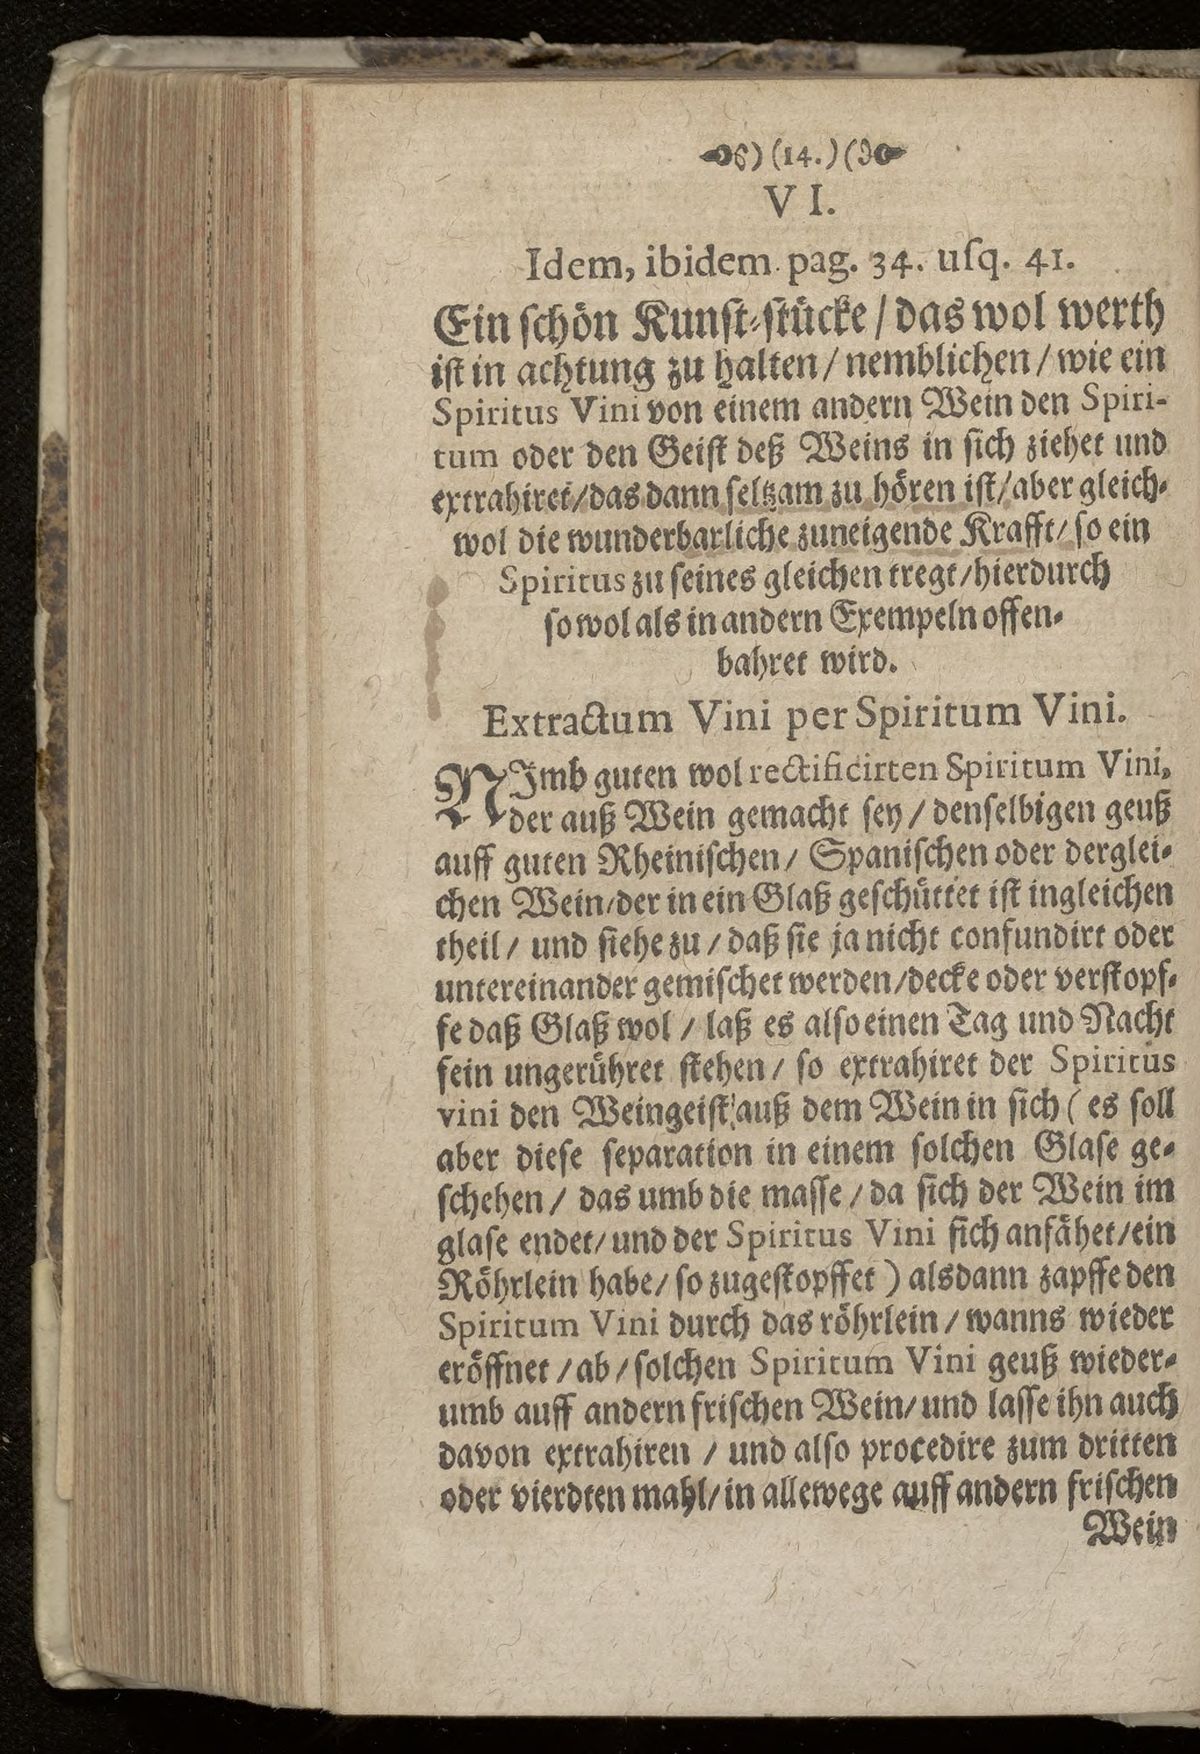 (14.)
VI.
Idem, ibidem. pag. 34. uſq. 41.
Ein ſchön Kunſt-ſtücke / das wol werth
iſt in achtung zu halten / nemblichen / wie ein
Spiritus Vini von einem andern Wein den Spiri-
tum oder den Geiſt deß Weins in ſich ziehet und
extrahiret / das dann ſeltzam zu hören iſt / aber gleich-
wol die wunderbarliche zuneigende Krafft / ſo ein
Spiritus zu ſeines gleichen tregt / hierdurch
ſo wol als in andern Exempeln offen-
bahret wird.
Extractum Vini per Spiritum Vini.
NImb guten wol rectificirten Spiritum Vini,
der auß Wein gemacht ſey / denſelbigen geuß
auff guten Rheiniſchen / Spaniſchen oder derglei-
chen Wein / der in ein Glaß geſchüttet iſt in gleichen
theil / und ſiehe zu / daß ſie ja nicht confundirt oder
untereinander gemiſchet werden / decke oder verſtopf-
fe daß Glaß wol / laß es alſo einen Tag und Nacht
fein ungerühret ſtehen / ſo extrahiret der Spiritus
vini den Weingeiſt auß dem Wein in ſich ( es ſoll
aber dieſe ſeparation in einem ſolchen Glaſe ge-
ſchehen / das umb die maſſe / da ſich der Wein im
glaſe endet / und der Spiritus Vini ſich anfähet / ein
Röhrlein habe / ſo zugeſtopffet ) alsdann zapffe den
Spiritum Vini durch das röhrlein / wanns wieder
eröffnet / ab / ſolchen Spiritum Vini geuß wieder-
umb auff andern friſchen Wein / und laſſe ihn auch
davon extrahiren / und alſo procedire zum dritten
oder vierdten mahl / in allewege auff andern friſchen
Wein